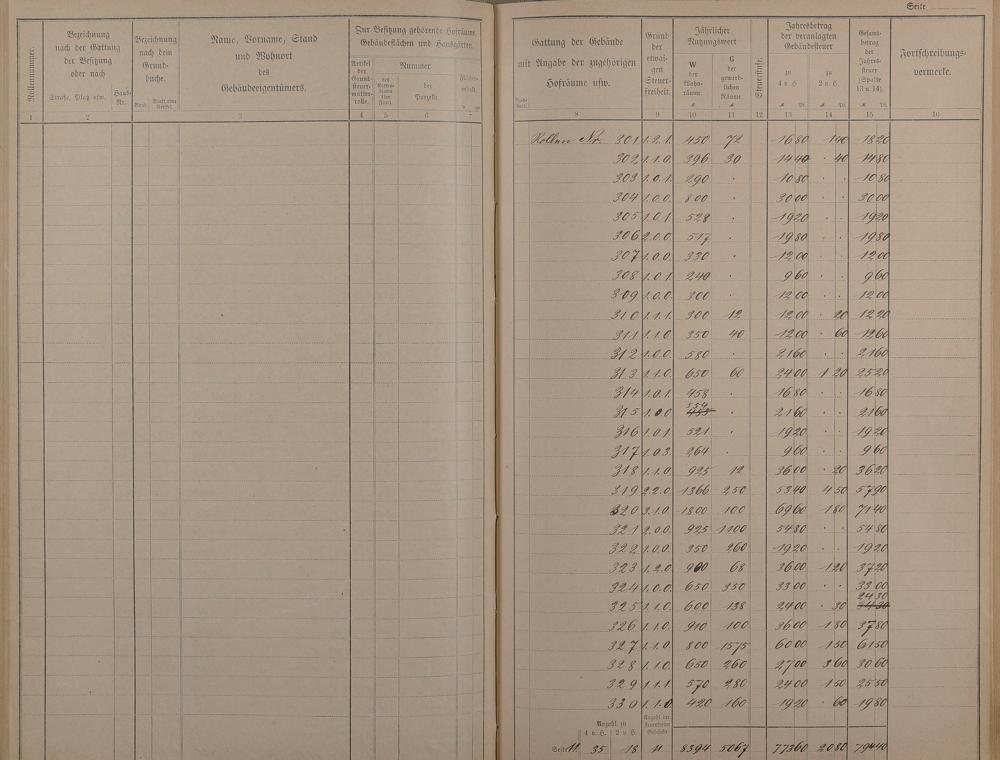 Seite
Rollennummer.
Bezeichnung nach der Gattung der Besitzung oder nach
Straße, Platz usw.
Haus-Nr.
Bezeichnung nach dem Grundbuche.
Band.
Blatt oder Artikel.
Name, Vorname, Stand und Wohnort des Gebäudeeigentümers.
Zur Besitzung gehörende Hofräume, Gebäudeflächen und Hausgärten.
Artikel der Grundsteuermutterrolle.
Nummer
der Parzelle.
1 2 3 4 5 6 7
Gattung der Gebäude
mit Angabe der zugehörigen
Hofräume usw.
Grund der etwaigen Steuerfreiheit.
Jährlicher Nutzungswert
W der Wohnräume.
G der gewerblichen Räume
Steuerstufe.
Jahresbetrag der veranlagten Gebäudesteuer
zu 4 v. H.
zu 2 v. H.
Gesamtbetrag der Jahressteuer (Spalte 13 u. 14).
Fortschreibungsvermerke.
8 9 10 11 12 13 14 15 16
Rollen Nr. 301 1.2.1. 450 72 16 80 1 40 18 20
302 1.1.0. 396 30 14 40 · 40 14 80
303 1.0.1. 290 · 10 80 · · 10 80
304 1.0.0. 800 · 30 00 · · 30 00
305 1.0.1. 528 · 19 20 · · 19 20
306 2.0.0. 517 · 19 80 · · 19 80
307 1.0.0. 330 · 12 00 · · 12 00
308 1.0.1. 240 · 9 60 · · 9 60
309 1.0.0. 300 · 12 00 · · 12 00
310 1.1.1. 300 12 12 00 · 20 12 20
311 1.1.0. 350 40 12 00 · 60 12 60
312 1.0.0. 580 · 21 60 · · 21 60
313 1.1.0. 650 60 24 00 1 20 25 20
314 1.0.1. 458 · 16 80 · · 16 80
315 1.0.0 554 · 21 60 · · 21 60
316 1.0.1. 521 · 19 20 · · 19 20
317 1.0.3. 264 · 9 60 · · 9 60
318 1.1.0. 925 12 36 00 · 20 36 20
319 2.2.0. 1366 250 53 40 4 50 57 90
320 3.1.0. 1800 100 69 60 1 80 71 40
321 2.0.0. 925 1100 54 80 · · 54 80
322 1.0.0. 350 260 19 20 · · 19 20
323 1.2.0. 900 68 36 00 1 20 37 20
324 1.0.0. 650 350 33 00 · · 33 00
325 1.1.0. 600 138 24 00 · 30 24 30
326 1.1.0. 910 100 36 00 1 80 37 80
327 1.1.0. 800 1575 60 00 1 50 61 50
328 1.1.0. 650 260 27 00 3 60 30 60
329 1.1.1. 570 280 24 00 1 50 25 50
330 1.1.0. 420 160 19 20 · 60 19 80
Anzahl zu
4 v. H. 2 v. H.
Seite 11 35 18 11 8394 5067 773 60 20 80 794 40